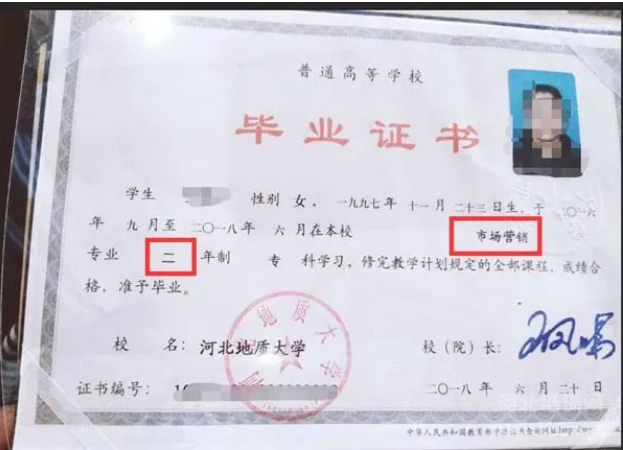 普通高等学校
毕业证书
学生 性别 女，一九九七年 十一月 二十三日生，于 二〇一六
年 九月至 二〇一八年 六月在本校 市场营销
专业 二 年制 专 科学习，修完教学计划规定的全部课程，成绩合
格，准予毕业。
校 名：河北地质大学
校（院）长：
证书编号：1
二〇一八年 六月二十日
中华人民共和国教育部学历证书查询网址：http://www